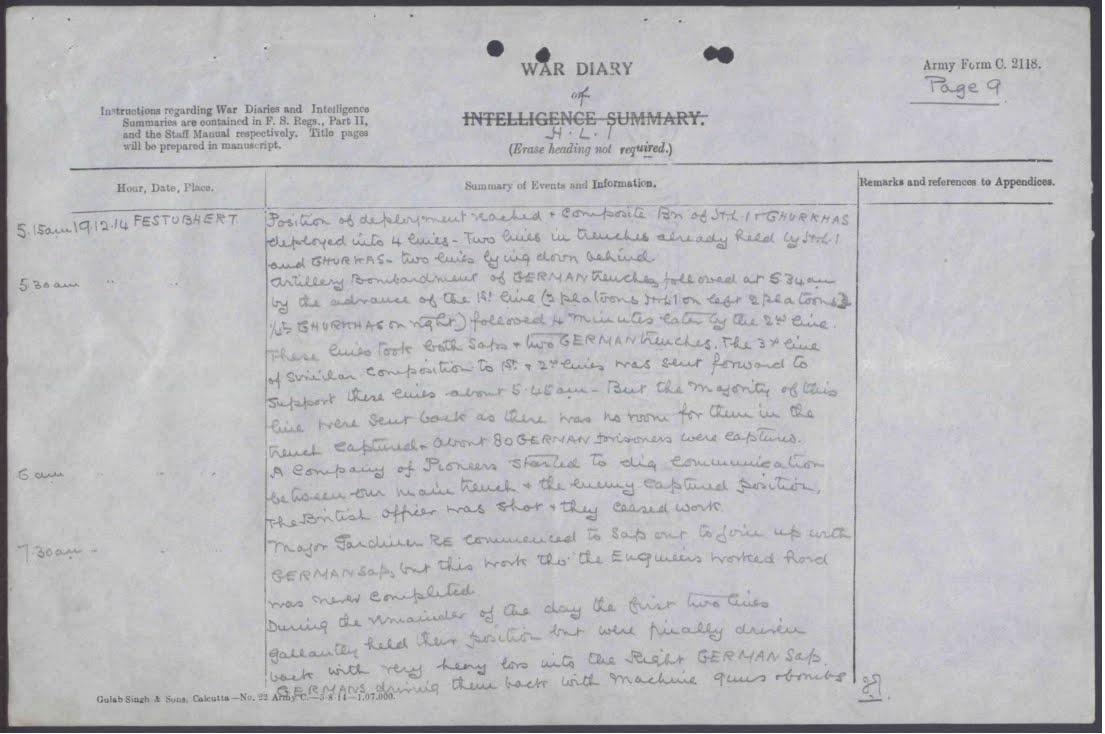 WAR DIARY
of
INTELLIGENCE SUMMARY.
H.L.I
(Erase heading not required.)
Army Form C. 2118.
Page 9
Instructions regarding War Diaries and Intelligence
Summaries are contained in F. S. Regs., Part II,
and the Staff Manual respectively. Title pages
will be prepared in manuscript.
Hour, Date, Place.
Summary of Events and Information.
Remarks and references to Appendices.
5.15am 19.12.14 FESTUBHERT
Position of deployment reached + Composite Bn of H.L.I + GHURKHAS
deployed into 4 lines - Two lines in trenches already held by H.L.I
and GHURKAS - two lines lying down behind.
5 30am
Artillery Bombardment of GERMAN trenches followed at 5.34am
by the advance of the 1st line (2 platoons H.L.I on left 2 platoons
GHURKHAS on right) followed 4 minutes later by the 2nd line.
These lines took both Saps + two GERMAN trenches. The 3rd line
of similar composition to 1st + 2nd lines was sent forward to
support these lines about 5.45am - But the majority of this
line were sent back as there was no room for them in the
trench captured. About 80 GERMAN prisoners were captured.
6 am
A Company of Pioneers started to dig communication
between our main trench + the enemy captured position,
The British officer was shot + they ceased work.
7.30am
Major Gardiner RE commenced to Sap out to join up with
GERMAN sap, but this work tho' the Engineers worked hard
was never completed
During the remainder of the day the first two lines
gallantly held their position but were finally driven
back with very heavy loss into the Right GERMAN Sap.
GERMANS driving them back with machine guns & bombs
Gulab Singh & Sons, Calcutta—No. 22 Army C.—5-8-14—1,07,000.